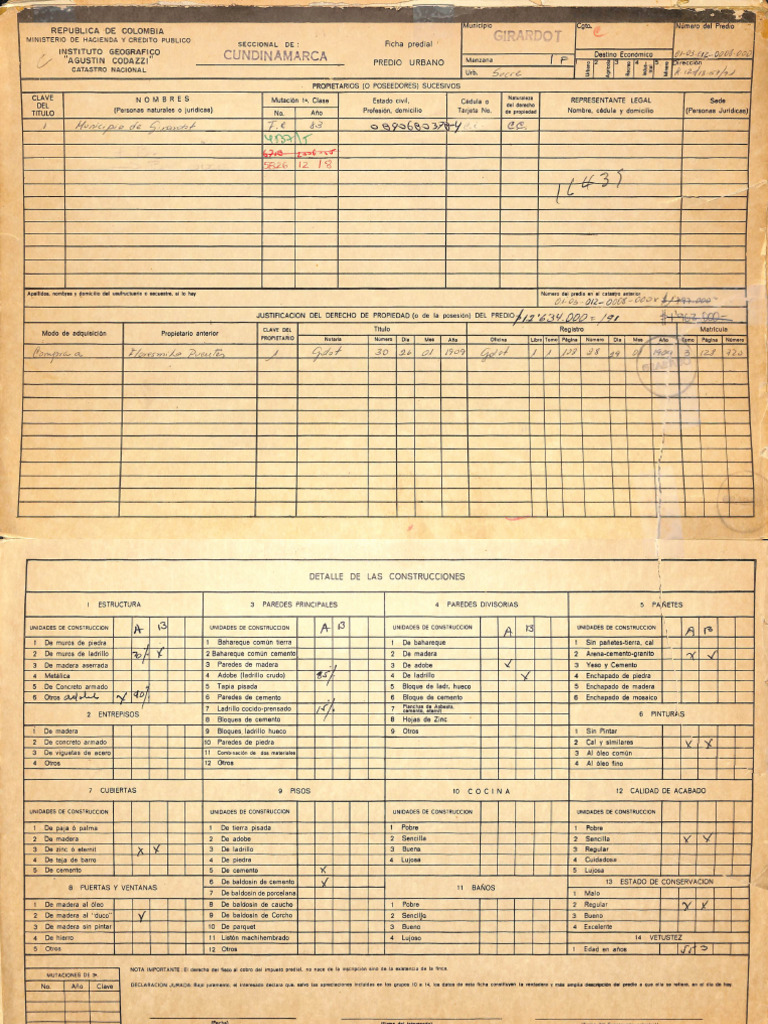 REPUBLICA DE COLOMBIA
MINISTERIO DE HACIENDA Y CREDITO PUBLICO
INSTITUTO GEOGRAFICO
"AGUSTIN CODAZZI"
CATASTRO NACIONAL
SECCIONAL DE:
CUNDINAMARCA
Ficha predial
PREDIO URBANO
Municipio
GIRARDOT
Manzana
1 P
Urb. Sucre
Cgto.
Destino Económico
Número del Predio
Dirección
PROPIETARIOS (O POSEEDORES) SUCESIVOS
CLAVE DEL TITULO
NOMBRES
(Personas naturales o jurídicas)
Mutación 1a. Clase
No. Año
Estado civil,
Profesión, domicilio
Cédula o
Tarjeta No.
Naturaleza del derecho de propiedad
REPRESENTANTE LEGAL
Nombre, cédula y domicilio
Sede
(Personas Jurídicas)
1 Municipio de Girardot 83 CC.
5826 12 18
16439
Apellidos, nombres y domicilio del usufructuario o secuestre, si lo hay
Número del predio en el catastro anterior
01-03-012-0008-000
JUSTIFICACION DEL DERECHO DE PROPIEDAD (o de la posesión) DEL PREDIO
$12'634.000=
Modo de adquisición
Propietario anterior
CLAVE DEL PROPIETARIO
Título
Notaría Número Día Mes Año
Registro
Oficina Libro Tomo Página Número Día Mes Año
Matrícula
Tomo Página Número
Compra 1 Gdot 30 26 01 1909 Gdot 1 1 38 29 3 128
DETALLE DE LAS CONSTRUCCIONES
1 ESTRUCTURA
UNIDADES DE CONSTRUCCION A B
1 De muros de piedra
2 De muros de ladrillo x
3 De madera aserrada
4 Metálica
5 De Concreto armado
6 Otros adobe x
2 ENTREPISOS
1 De madera
2 De concreto armado
3 De viguetas de acero
4 Otros
3 PAREDES PRINCIPALES
UNIDADES DE CONSTRUCCION A B
1 Bahareque común tierra
2 Bahareque común cemento
3 Paredes de madera
4 Adobe (ladrillo crudo) 85%
5 Tapia pisada
6 Paredes de cemento
7 Ladrillo cocido-prensado 15%
8 Bloques de cemento
9 Bloques ladrillo hueco
10 Paredes de piedra
11 Combinación de dos materiales
12 Otros
4 PAREDES DIVISORIAS
UNIDADES DE CONSTRUCCION A B
1 De bahareque
2 De madera
3 De adobe
4 De ladrillo
5 Bloque de ladr. hueco
6 Bloque de cemento
7 Planchas de Asbesto, cemento, eternit
8 Hojas de Zinc
9 Otros
5 PAÑETES
UNIDADES DE CONSTRUCCION A B
1 Sin pañetes-tierra, cal
2 Arena-cemento-granito
3 Yeso y Cemento
4 Enchapado de piedra
5 Enchapado de madera
6 Enchapado de mosaico
6 PINTURAS
1 Sin Pintar
2 Cal y similares x x
3 Al óleo común
4 Al óleo fino
7 CUBIERTAS
UNIDADES DE CONSTRUCCION
1 De paja ó palma
2 De madera
3 De zinc ó eternit x x
4 De teja de barro
5 De cemento
8 PUERTAS Y VENTANAS
1 De madera al óleo
2 De madera al "duco"
3 De madera sin pintar
4 De hierro
5 Otros
9 PISOS
UNIDADES DE CONSTRUCCION
1 De tierra pisada
2 De adobe
3 De ladrillo
4 De piedra
5 De cemento x
6 De baldosín de cemento
7 De baldosín de porcelana
8 De baldosín de caucho
9 De baldosín de Corcho
10 De parquet
11 Listón machihembrado
12 Otros
10 COCINA
UNIDADES DE CONSTRUCCION
1 Pobre
2 Sencilla
3 Buena
4 Lujosa
11 BAÑOS
1 Pobre
2 Sencillo
3 Bueno
4 Lujoso
12 CALIDAD DE ACABADO
UNIDADES DE CONSTRUCCION
1 Pobre
2 Sencilla
3 Regular
4 Cuidadosa
5 Lujosa
13 ESTADO DE CONSERVACION
1 Malo
2 Regular
3 Bueno
4 Excelente
14 VETUSTEZ
1 Edad en años
MUTACIONES DE 1a.
No. Año Clave
NOTA IMPORTANTE: El derecho del fisco al cobro del impuesto predial, no nace de la inscripción sino de la existencia de la finca.
DECLARACION JURADA: Bajo juramento, el interesado declara que, salvo las apreciaciones incluídas en los grupos 10 a 14, los datos de esta ficha constituyen la verdadera y más amplia descripción del predio a que ella se refiere, en el día de hoy.
(Fecha)